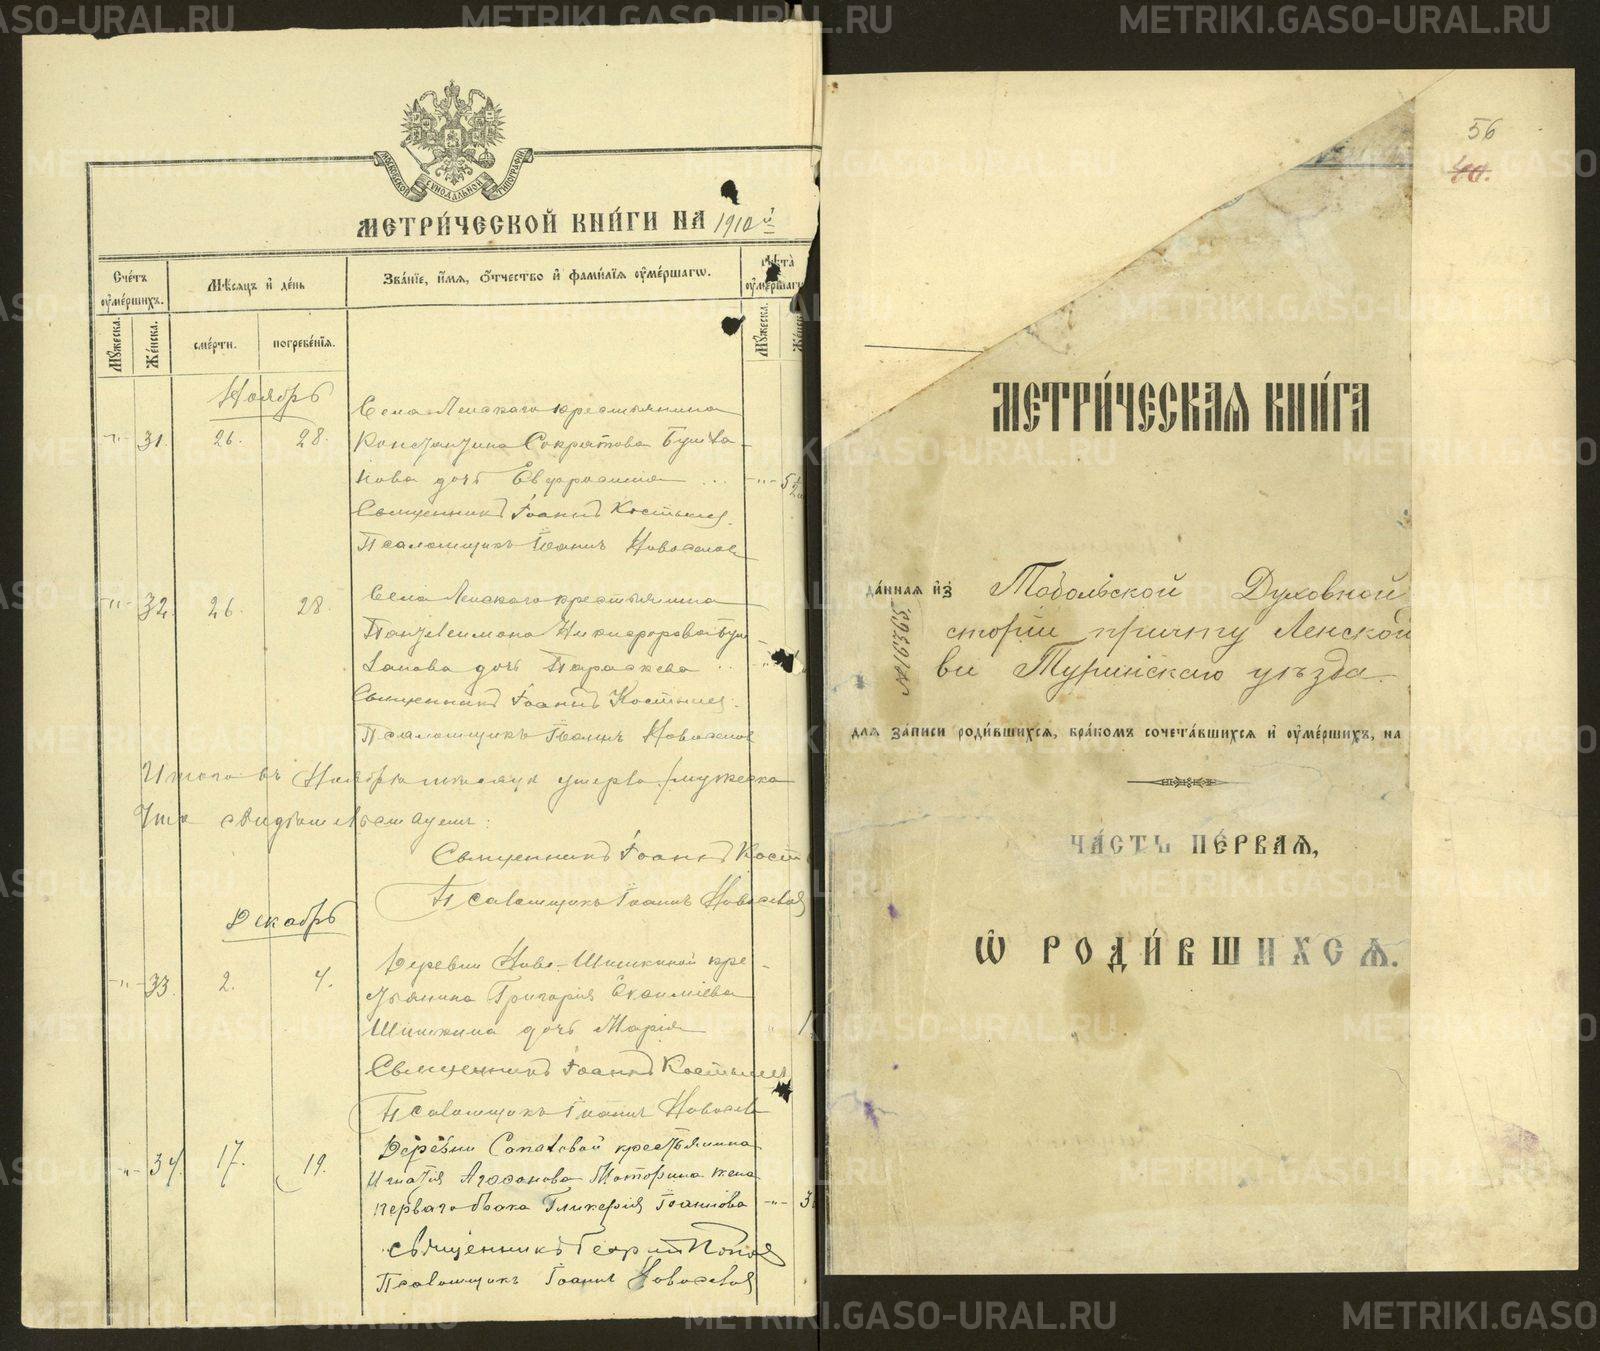 МОСКОВСКОЙ СѴНОДАЛЬНОЙ ТИПОГРАФІИ
МЕТРИ́ЧЕСКОЙ КНИ́ГИ НА 1910 й
Счетъ оумершихъ.
Мѣсяцъ и день
Званіе, имя, отчество и фамилія оумершагѡ.
Лѣта оумершагѡ
Мужеска.
Женска.
смерти.
погребенія.
Мужеска.
Ноябрь
Села Ленскаго крестьянина
-"- 31. 26. 28. Константина Сократова Булла-
нова дочь Евфросинія
Священникъ Іоаннъ
Псаломщикъ Іоаннъ Новоселов
-"- 32. 26 28. Села Ленскаго крестьянина
Пантелеимона Никифорова
ланова дочь Параскева
Священникъ Іоаннъ
Псаломщикъ Іоаннъ Новоселов
Итого въ Ноябрѣ месяцѣ умерло: мужеска
Что свидѣтельствуемъ:
Священникъ Іоаннъ
Псаломщикъ Іоаннъ Новоселов
Декабрь
-"- 33. 2. 4. Деревни Ново-Шишкиной кре-
стьянина Григорія
Шишкина дочь Марія
Священникъ Іоаннъ
Псаломщикъ Іоаннъ Новоселов
-"- 34. 17. 19. Деревни крестьянина
Игнатія жена
перваго брака Гликерія Іоаннова
Священникъ Георгій Попов
Псаломщикъ Іоаннъ Новоселов
56
40.
МЕТРИ́ЧЕСКАѦ КНИ́ГА
данная из Тобольской Духовной
сторіи причту Ленской
ви Туринскаго уѣзда
№ 16365.
для записи родившихся, бракомъ сочетавшихся и оумершихъ, на
ЧА́СТЬ ПЕ́РВАѦ,
Ѡ РОДИ́ВШИХСѦ.
METRIKI.GASO-URAL.RU